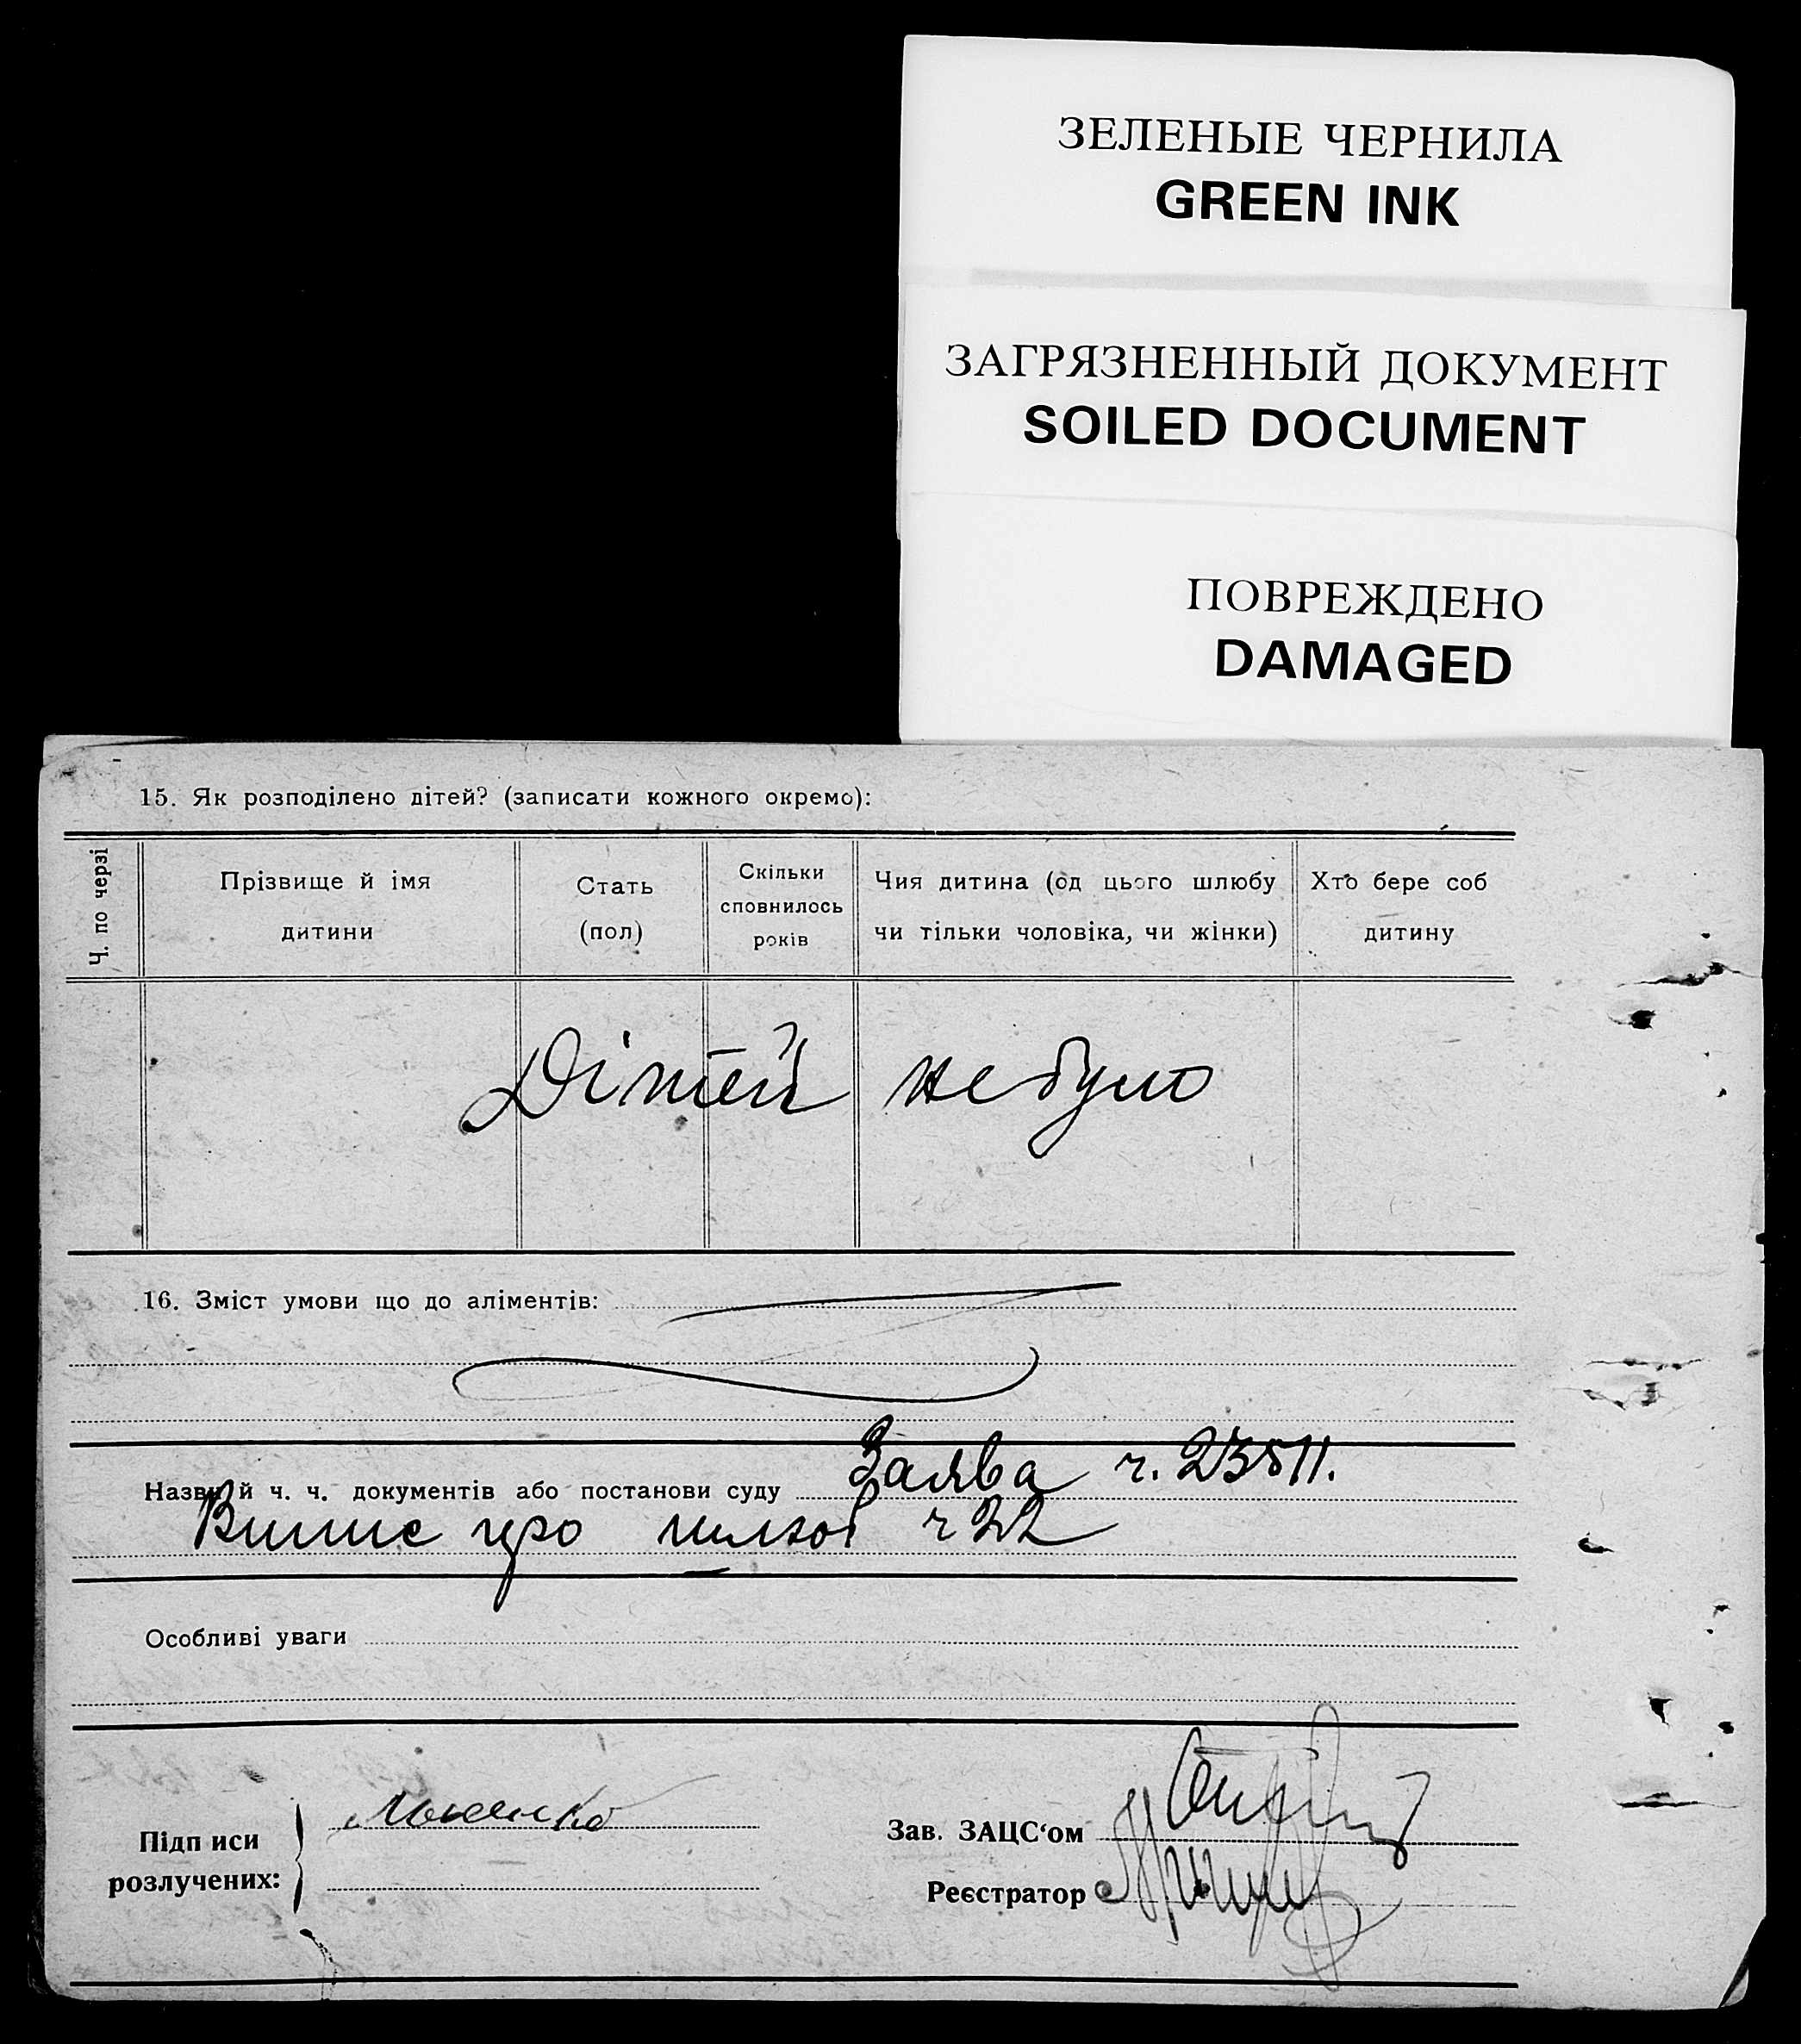 ЗЕЛЕНЫЕ ЧЕРНИЛА
GREEN INK
ЗАГРЯЗНЕННЫЙ ДОКУМЕНТ
SOILED DOCUMENT
ПОВРЕЖДЕНО
DAMAGED
15. Як розподілено дітей? (записати кожного окремо):
Ч. по черзі
Прізвище й імя
дитини
Стать
(пол)
Скільки
сповнилось
років
Чия дитина (од цього шлюбу
чи тільки чоловіка, чи жінки)
Хто бере соб
дитину
Дітей не було
16. Зміст умови що до аліментів:
Назви й ч. ч. документів або постанови суду Заява ч. 23511.
Випис про шлюб ч 22
Особливі уваги
Підписи
розлучених:
Зав. ЗАЦС‘ом
Реєстратор